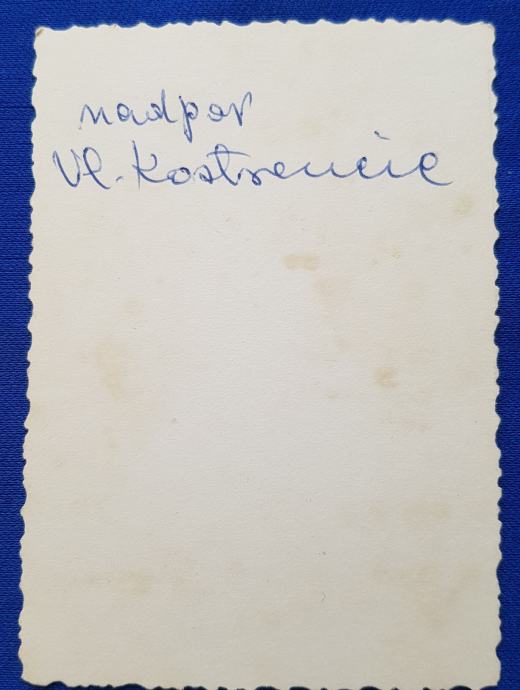 nadpor
Vl. Kostrencic